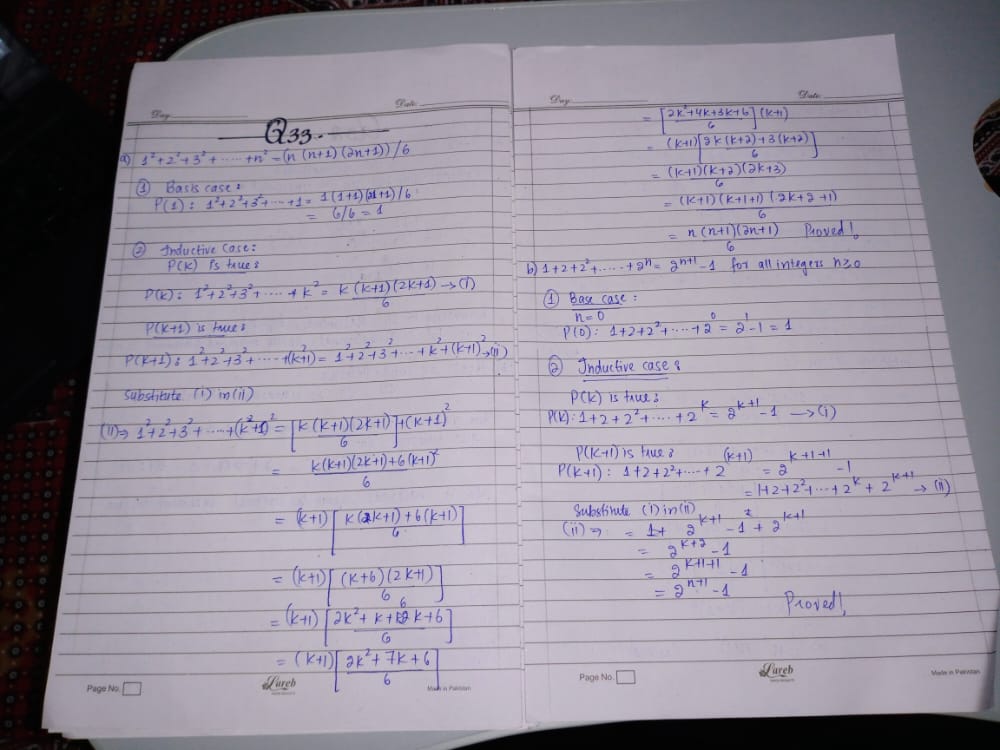 Day: Date:
Q33.
a) 1²+2²+3²+.....+n² = (n (n+1) (2n+1)) /6
① Basis case:
P(1): 1²+2²+3²+...+1 = 1(1+1)(21+1)/6
= 6/6 = 1
② Inductive Case:
P(k) is true:
P(k): 1²+2²+3²+.....+k² = k (k+1)(2k+1)/6 → (i)
P(k+1) is true:
P(k+1): 1²+2²+3²+.....+(k+1)² = 1²+2²+3²+...+k²+(k+1)² → (ii)
Substitute (i) in (ii)
(ii) ⇒ 1²+2²+3²+.....+(k²+1)² = [k(k+1)(2k+1)/6]+(k+1)²
= k(k+1)(2k+1)+6(k+1)²/6
= (k+1)[k(2k+1)+6(k+1)/6]
= (k+1)[(k+6)(2k+1)/6]
= (k+1)[2k²+k+6k+6/6]
= (k+1)[2k²+7k+6/6]
Page No. Lareb Made in Pakistan
Day: Date:
= [2k²+4k+3k+6/6](k+1)
= (k+1)[2k(k+2)+3(k+2)/6]
= (k+1)(k+2)(2k+3)/6
= (k+1)(k+1+1)(2k+2+1)/6
= n(n+1)(2n+1)/6 Proved!
b) 1+2+2²+.....+2ⁿ = 2ⁿ⁺¹-1 for all integers n≥0
① Base case:
n=0
P(0): 1+2+2²+.....+2⁰ = 2¹-1 = 1
② Inductive case:
P(k) is true:
P(k): 1+2+2²+.....+2^k = 2^(k+1) -1 → (i)
P(k+1) is true:
P(k+1): 1+2+2²+....+2^(k+1) = 2^(k+1+1) -1
= 1+2+2²+...+2^k + 2^(k+1) → (ii)
Substitute (i) in (ii)
(ii) ⇒ = 1+ 2^(k+1) -1 + 2^(k+1)
= 2^(k+2) -1
= 2^(k+1+1) -1
= 2^(n+1) -1
Proved!
Page No. Lareb Made in Pakistan